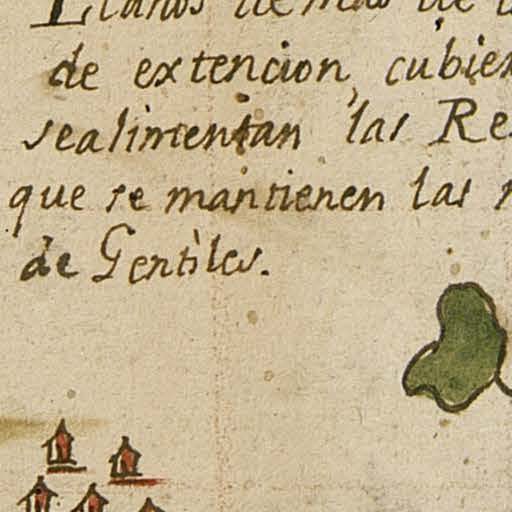 Llanos de mas de
de extencion, cubier
sealimentan las Re
que se mantienen las
de Gentiles.